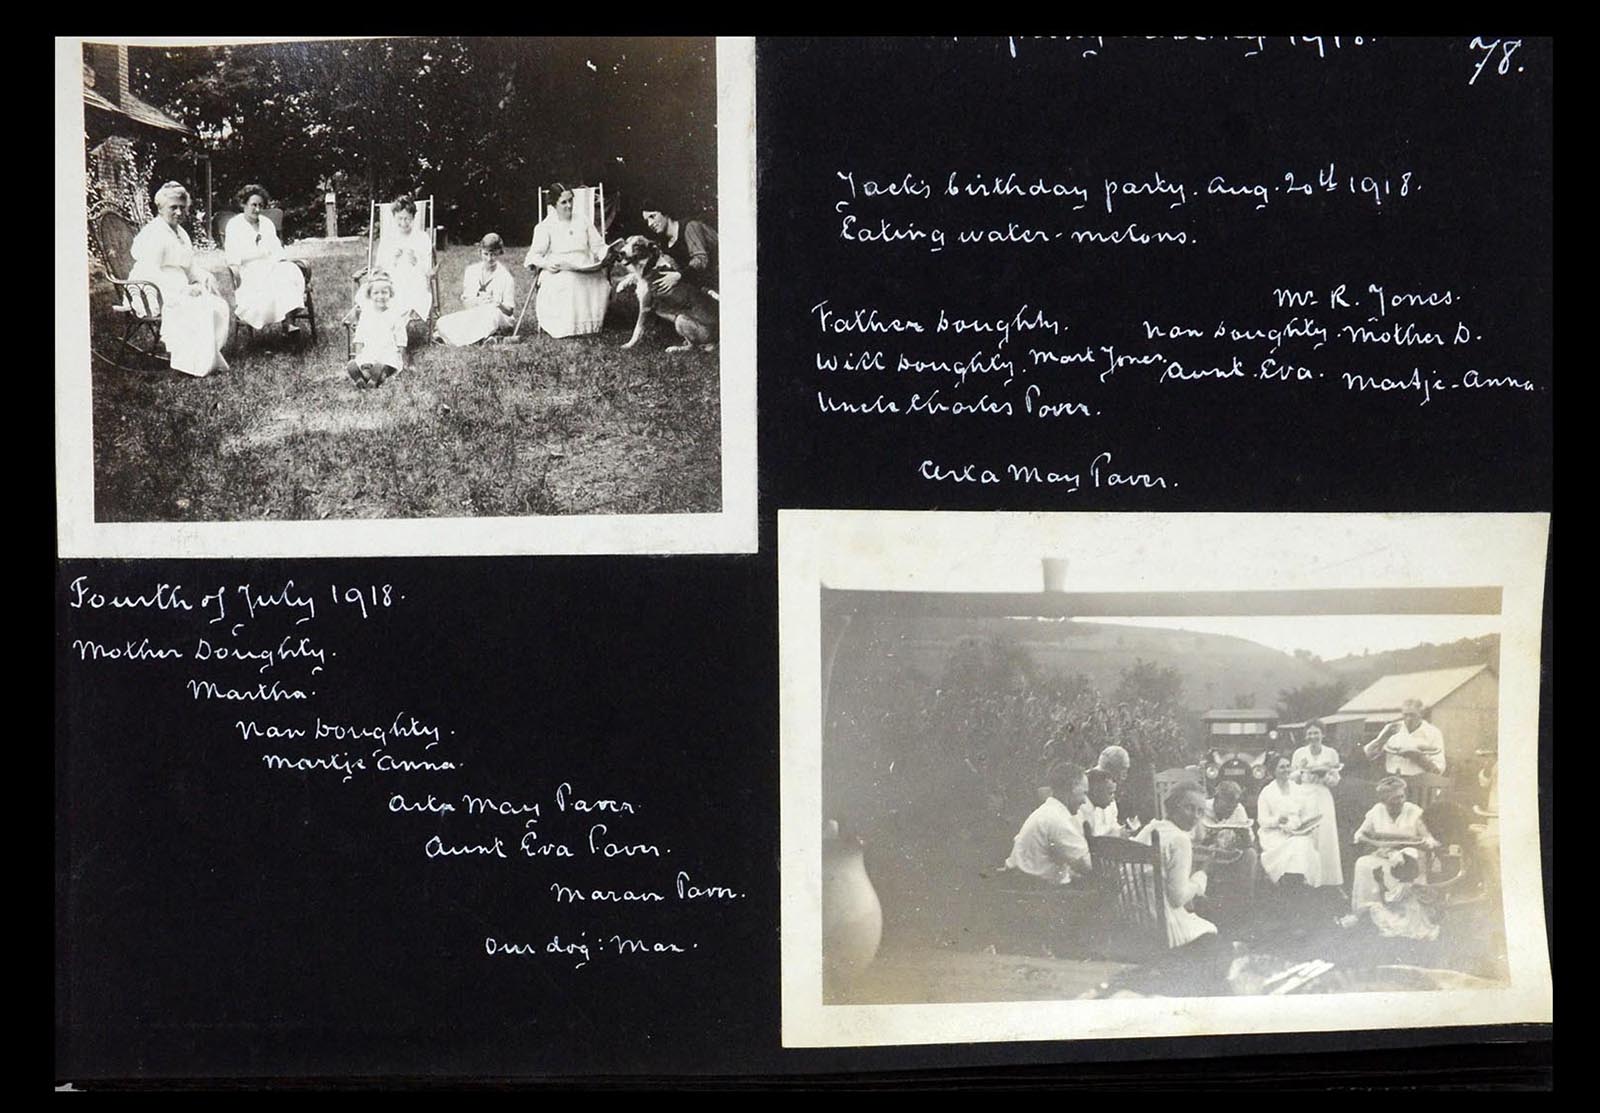 1918.
78.
Jack's birthday party. Aug. 20th 1918.
Eating water-melons.
Mr R. Jones.
Father Doughty. Nan Doughty. Mother D.
Will Doughty. Mart Jones. Aunt. Eva. Martje-Anna.
Uncle Charles Paver.
May Paver.
Fourth of July 1918.
Mother Doughty.
Martha.
Nan Doughty.
Martje Anna.
May Paver.
Aunt Eva Paver.
Paver.
Our dog: Max.